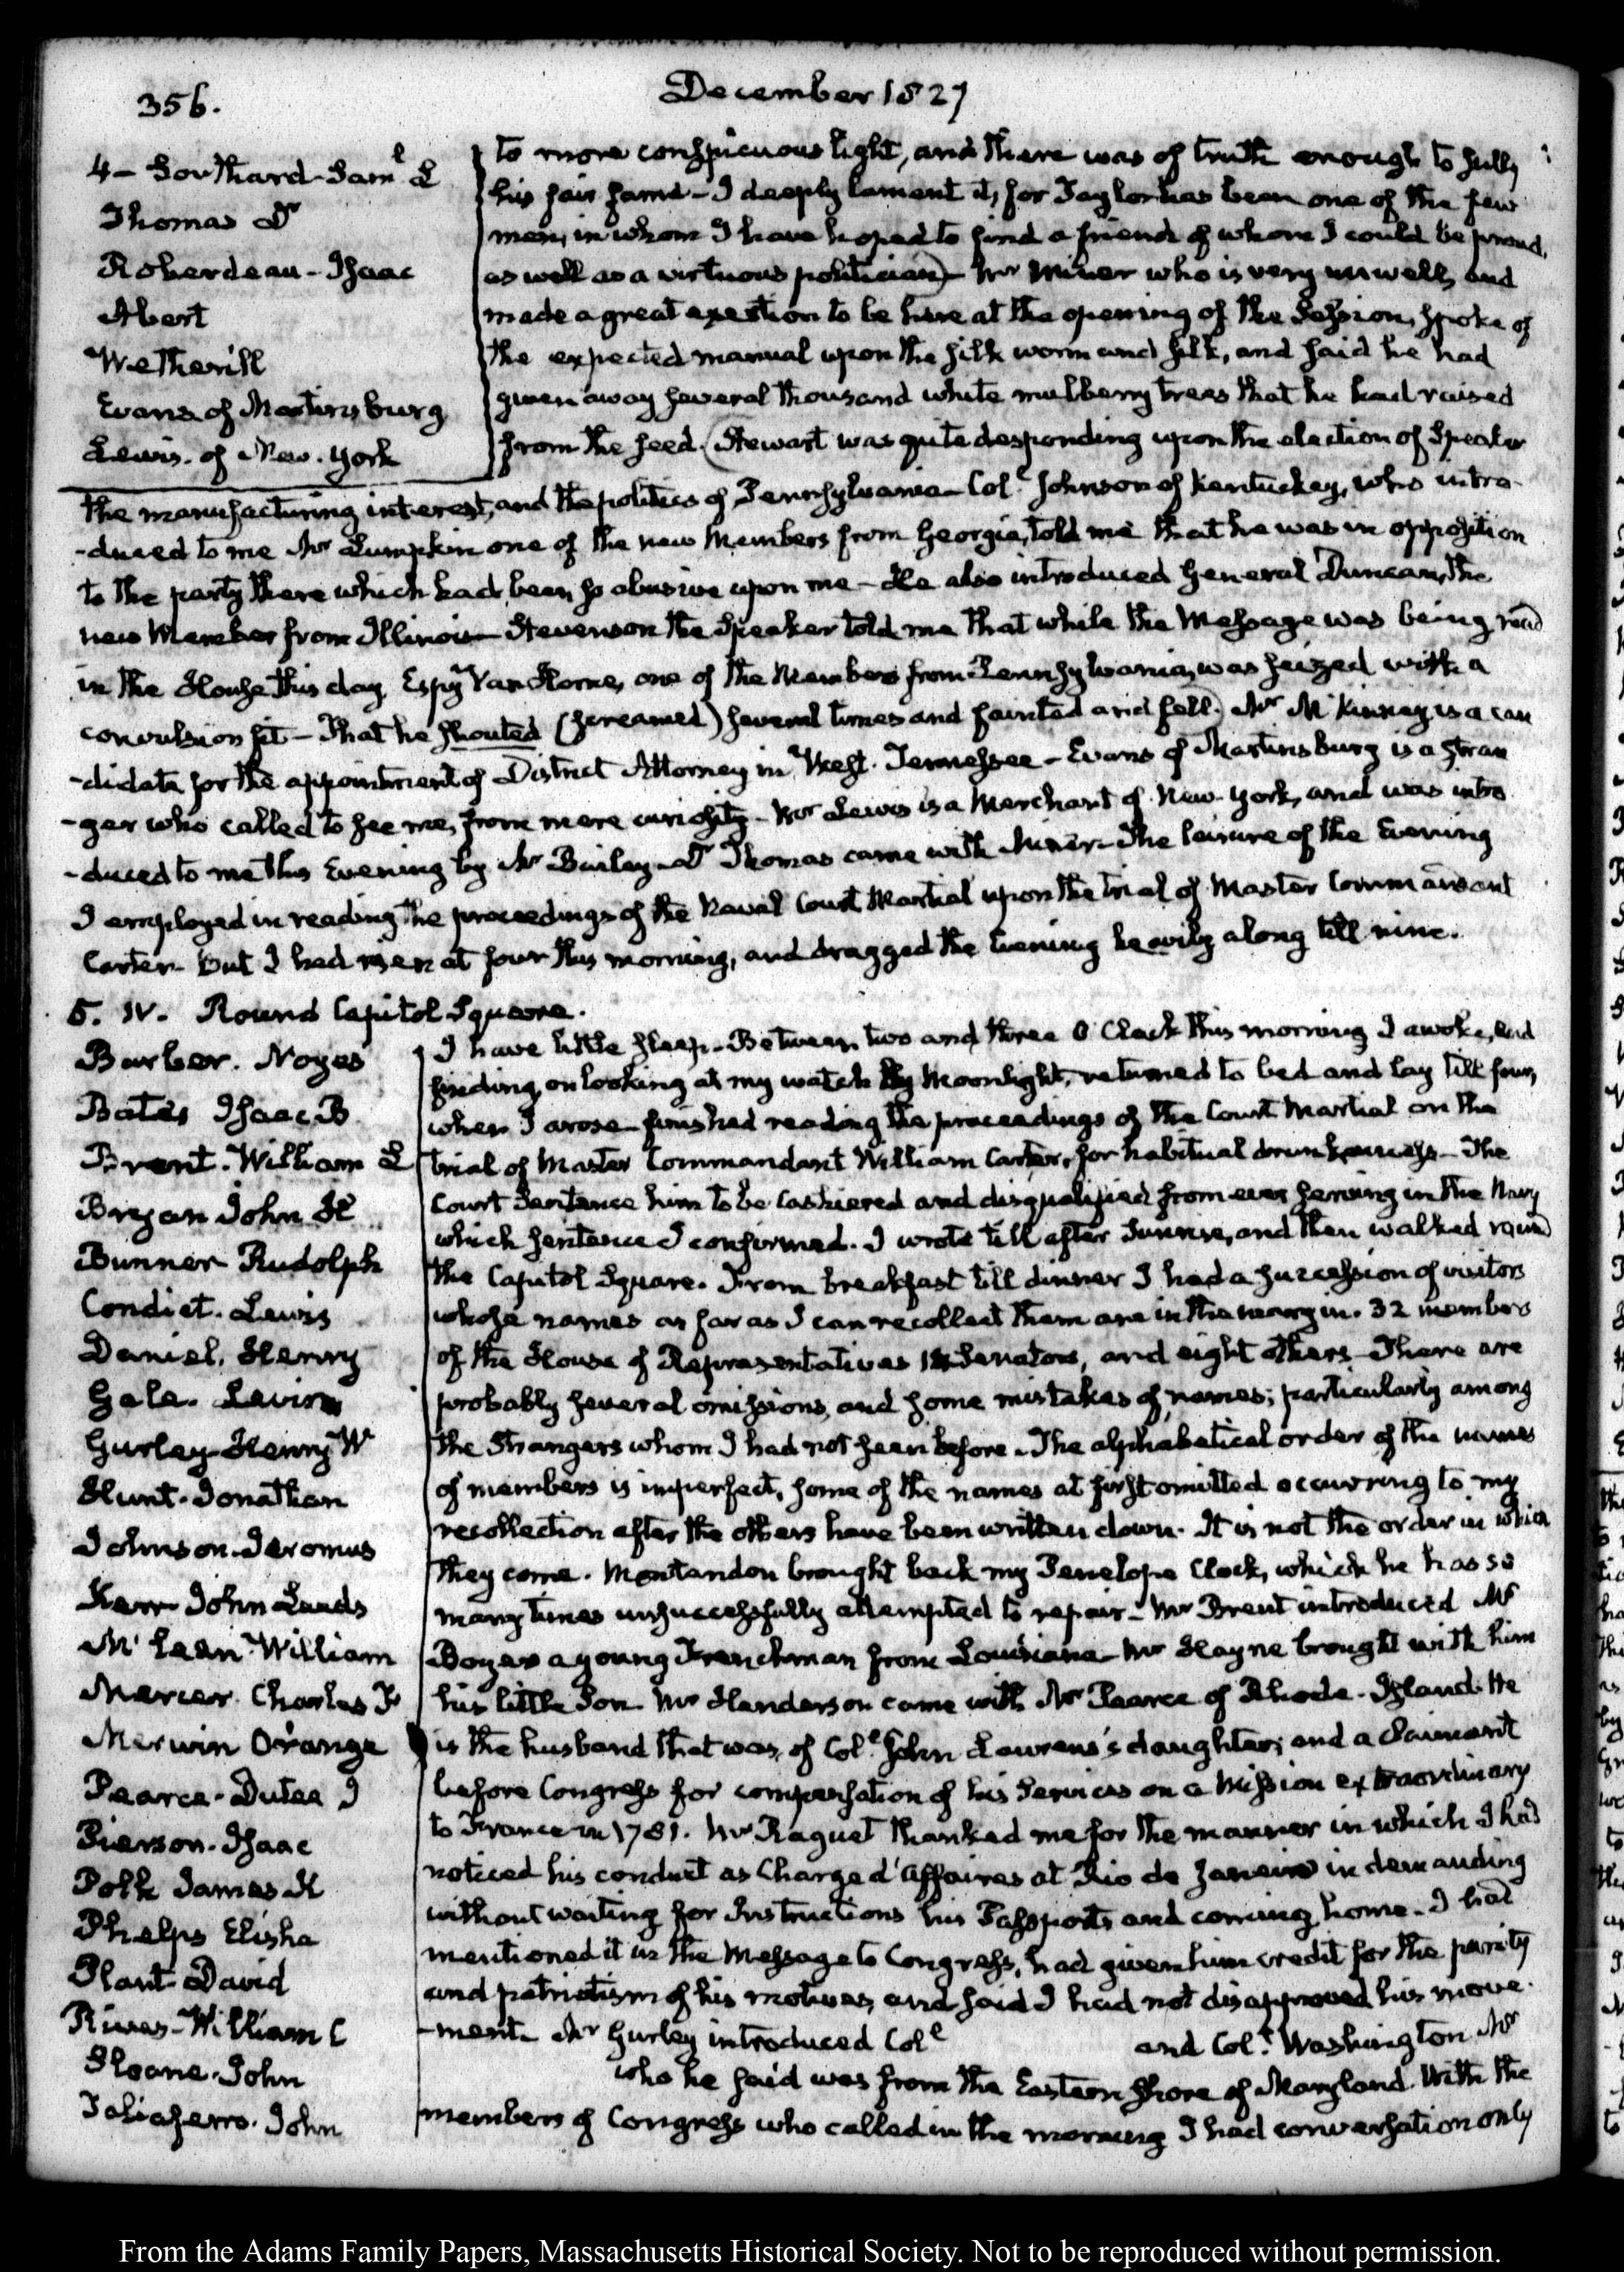 356.
December 1827
4- Southard-Saml L
Thomas Dr
Roberdeau-Isaac
Abert
Wetherill
Evans of Martinsburg
Lewis. of New-York
to more conspicuous light, and there was of truth enough to sully
his fair fame- I deeply lament it, for Taylor has been one of the few
men, in whom I have hoped to find a friend of whom I could be proud,
as well as a virtuous politician)- Mr Miner who is very unwell, and
made a great exertion to be here at the opening of the Session, spoke of
the expected manual upon the silk worm and silk, and said he had
given away several thousand white mulberry trees that he had raised
from the seed. (Stewart was quite desponding upon the election of Speaker
the manufacturing interest, and the politics of Pennsylvania- Coll Johnson of Kentucky, who intro-
-duced to me Mr Lumpkin one of the new Members from Georgia, told me that he was in opposition
to the party there which had been so abusive upon me- He also introduced General Duncan, the
new Member from Illinois- Stevenson the Speaker told me that while the Message was being read
in the House this day, Espy Van Horne, one of the Members from Pennsylvania, was seized with a
convulsion fit- That he shouted (screamed) several times and fainted and fell.) Mr McKinney is a can
-didate for the appointment of District Attorney in West-Tennessee- Evans of Martinsburg is a stran
-ger who called to see me, from mere curiosity- Mr Lewis is a Merchant of New-York, and was intro
-duced to me this Evening by Mr Bailey- Dr Thomas came with Miner- The leisure of the Evening
I employed in reading the proceedings of the Naval Court Martial upon the trial of Master Commandant
Carter- But I had risen at four this morning, and dragged the Evening heavily along till nine.
5. IV. Round Capitol Square.
Barber. Noyes
Bates Isaac B
Brent. William L
Bryan John H
Bunner Rudolph
Condict. Lewis
Daniel. Henry
Gale. Levin
Gurley-Henry W
Hunt-Jonathan
Johnson-Jeromus
Kerr John Leeds
McLean William
Mercer. Charles F
Merwin Orange
Pearce-Dutee J
Pierson-Isaac
Polk James K
Phelps Elisha
Plant David
Rives-William C
Sloane-John
Taliaferro. John
I have little sleep- Between two and three O'Clock this morning I awoke, and
finding, on looking at my watch by Moonlight, returned to bed and lay till four,
when I arose- finished reading the proceedings of the Court Martial on the
trial of Master Commandant William Carter, for habitual drunkenness- The
Court Sentence him to be Cashiered and disqualified from ever serving in the Navy
which sentence I confirmed. I wrote till after Sunrise, and then walked round
the Capitol Square. From breakfast till dinner I had a succession of visitors
whose names as far as I can recollect them are in the margin. 32 members
of the House of Representatives Senators, and eight others- There are
probably several omissions, and some mistakes of names; particularly among
the Strangers whom I had not seen before. The alphabetical order of the names
of members is imperfect, some of the names at first omitted occurring to my
recollection after the others have been written down. It is not the order in which
they come. Montandon brought back my Penelope Clock, which he has so
many times unsuccessfully attempted to repair- Mr Brent introduced Mr
Boyer a young Frenchman from Louisiana- Mr Hayne brought with him
his little Son. Mr Henderson came with Mr Pearce of Rhode-Island. He
is the husband that was, of Coll John Lawrens's daughter; and a Claimant
before Congress for compensation of his Services on a Mission extraordinary
to France in 1781. Mr Raguet thanked me for the manner in which I had
noticed his conduct as Charge d'affaires at Rio de Janeiro in demanding
without waiting for Instructions his Passports and coming home. I had
mentioned it in the Message to Congress, had given him credit for the purity
and patriotism of his motives, and said I had not disapproved his move-
-ment- Mr Gurley introduced Coll and Coll Washington Mr
who he said was from the Eastern Shore of Maryland. With the
members of Congress who called in the morning I had conversation only
From the Adams Family Papers, Massachusetts Historical Society. Not to be reproduced without permission.